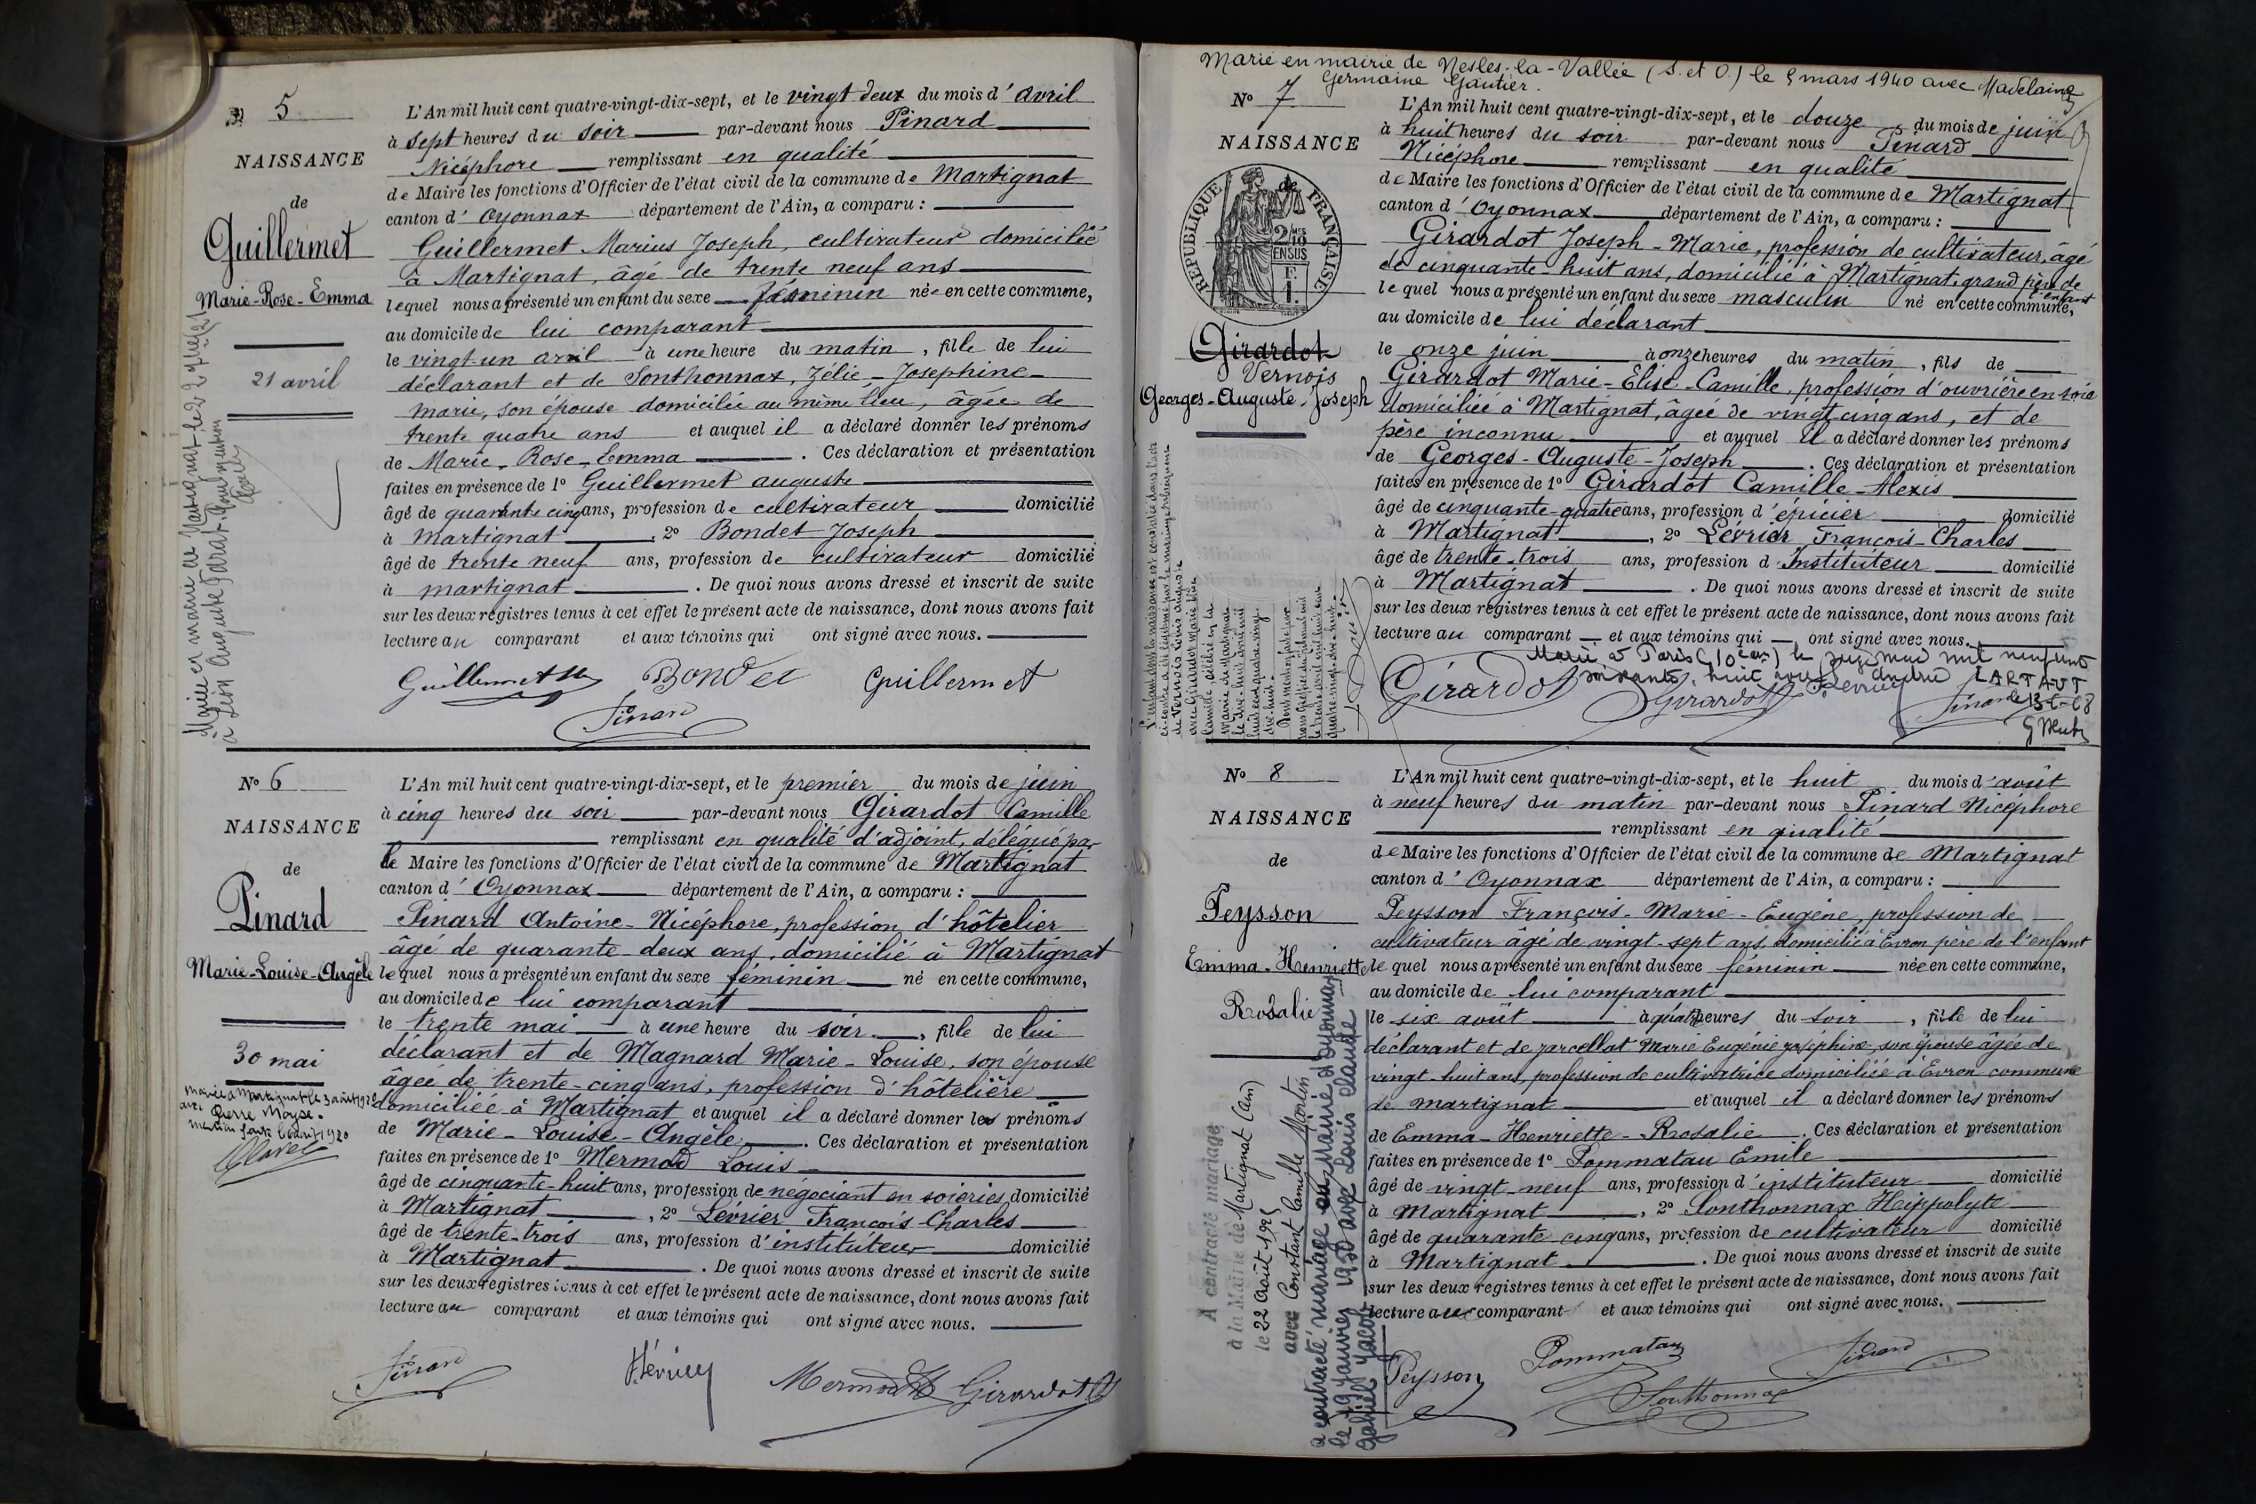 N° 5
NAISSANCE
de
Guillermet
Marie-Rose-Emma
21 avril
Mariée en mairie de Martignat le 22
à Léon Auguste
L'An mil huit cent quatre-vingt-dix-sept, et le vingt deux du mois d'avril
à sept heures du soir par-devant nous Pinard
Nicéphore remplissant en qualité
de Maire les fonctions d'Officier de l'état civil de la commune de Martignat
canton d'Oyonnax département de l'Ain, a comparu :
Guillermet Marius Joseph, cultivateur domicilié
à Martignat, âgé de trente neuf ans
lequel nous a présenté un enfant du sexe féminin née en cette commune,
au domicile de lui comparant
le vingt-un avril à une heure du matin, fille de lui
déclarant et de Sonthonnax, Zélie-Josephine-
Marie, son épouse domiciliée au même lieu, âgée de
trente quatre ans et auquel il a déclaré donner les prénoms
de Marie-Rose-Emma. Ces déclaration et présentation
faites en présence de 1° Guillermet auguste
âgé de quarante cinq ans, profession de cultivateur domicilié
à Martignat, 2° Bondet Joseph
âgé de trente neuf ans, profession de cultivateur domicilié
à martignat. De quoi nous avons dressé et inscrit de suite
sur les deux registres tenus à cet effet le présent acte de naissance, dont nous avons fait
lecture au comparant et aux témoins qui ont signé avec nous.
Guillermet Bondet Guillermet
Pinard
N° 6
NAISSANCE
de
Pinard
Marie-Louise-Angèle
30 mai
Mariée à Martignat le 3 août 1920
avec Pierre Moyse.
L'An mil huit cent quatre-vingt-dix-sept, et le premier du mois de juin
à cinq heures du soir par-devant nous Girardot Camille
remplissant en qualité d'adjoint, délégué par
le Maire les fonctions d'Officier de l'état civil de la commune de Martignat
canton d'Oyonnax département de l'Ain, a comparu :
Pinard Antoine-Nicéphore, profession d'hôtelier
âgé de quarante-deux ans, domicilié à Martignat
lequel nous a présenté un enfant du sexe féminin né en cette commune,
au domicile de lui comparant
le trente mai à une heure du soir, fille de lui
déclarant et de Magnard Marie-Louise, son épouse
âgée de trente-cinq ans, profession d'hôtelière
domiciliée à Martignat et auquel il a déclaré donner les prénoms
de Marie-Louise-Angèle. Ces déclaration et présentation
faites en présence de 1° Mermod Louis
âgé de cinquante-huit ans, profession de négociant en soieries domicilié
à Martignat, 2° Lévrier François-Charles
âgé de trente-trois ans, profession d'instituteur domicilié
à Martignat. De quoi nous avons dressé et inscrit de suite
sur les deux registres tenus à cet effet le présent acte de naissance, dont nous avons fait
lecture au comparant et aux témoins qui ont signé avec nous.
Pinard Lévrier Mermod Girardot
Marié en mairie de Nesles-la-Vallée (S. et O.) le 5 mars 1940 avec Madelaine
Germaine Gautier.
N° 7
NAISSANCE
de
REPUBLIQUE FRANÇAISE
2/10 MES
EN SUS
1 F.
Girardot
Vernois
Georges-Auguste-Joseph
L'An mil huit cent quatre-vingt-dix-sept, et le douze du mois de juin
à huit heures du soir par-devant nous Pinard
Nicéphore remplissant en qualité
de Maire les fonctions d'Officier de l'état civil de la commune de Martignat
canton d'Oyonnax département de l'Ain, a comparu :
Girardot Joseph-Marie, profession de cultivateur, âgé
de cinquante-huit ans, domicilié à Martignat, grand père de
l'enfant
lequel nous a présenté un enfant du sexe masculin né en cette commune,
au domicile de lui déclarant
le onze juin à onze heures du matin, fils de
Girardot Marie-Elise-Camille, profession d'ouvrière en soie
domiciliée à Martignat, âgée de vingt cinq ans, et de
père inconnu et auquel il a déclaré donner les prénoms
de Georges-Auguste-Joseph. Ces déclaration et présentation
faites en présence de 1° Girardot Camille-Alexis
âgé de cinquante-quatre ans, profession d'épicier domicilié
à Martignat, 2° Lévrier François-Charles
âgé de trente-trois ans, profession d'Instituteur domicilié
à Martignat. De quoi nous avons dressé et inscrit de suite
sur les deux registres tenus à cet effet le présent acte de naissance, dont nous avons fait
lecture au comparant et aux témoins qui ont signé avec nous.
Marié à Paris (10e) le mai mil neuf cent
soixante huit avec LARTAUT
Girardot Girardot Lévrier Pinard
N° 8
NAISSANCE
de
Peysson
Emma-Henriette
Rosalie
A contracté mariage
à la Mairie de Martignat (Ain)
le 22 août 1925
avec Constant Camille Martin
a contracté mariage en Mairie d'Oyonnax
le 19 janvier 1950 avec Louis Claude
Gabriel Jacob
L'An mil huit cent quatre-vingt-dix-sept, et le huit du mois d'août
à neuf heures du matin par-devant nous Pinard Nicéphore
remplissant en qualité
de Maire les fonctions d'Officier de l'état civil de la commune de Martignat
canton d'Oyonnax département de l'Ain, a comparu :
Peysson François-Marie-Eugène, profession de
cultivateur âgé de vingt-sept ans, domicilié à Evron père de l'enfant
lequel nous a présenté un enfant du sexe féminin née en cette commune,
au domicile de lui comparant
le six août à quatre heures du soir, fille de lui
déclarant et de Marie Eugénie Joséphine, son épouse âgée de
vingt-huit ans, profession de cultivatrice domiciliée à Evron commune
de martignat et auquel il a déclaré donner les prénoms
de Emma-Henriette-Rosalie. Ces déclaration et présentation
faites en présence de 1° Pommatau Emile
âgé de vingt-neuf ans, profession d'instituteur domicilié
à Martignat, 2° Sonthonnax Hippolyte
âgé de quarante cinq ans, profession de cultivateur domicilié
à Martignat. De quoi nous avons dressé et inscrit de suite
sur les deux registres tenus à cet effet le présent acte de naissance, dont nous avons fait
lecture au comparant et aux témoins qui ont signé avec nous.
Peysson Pommatau Pinard
Sonthonnax